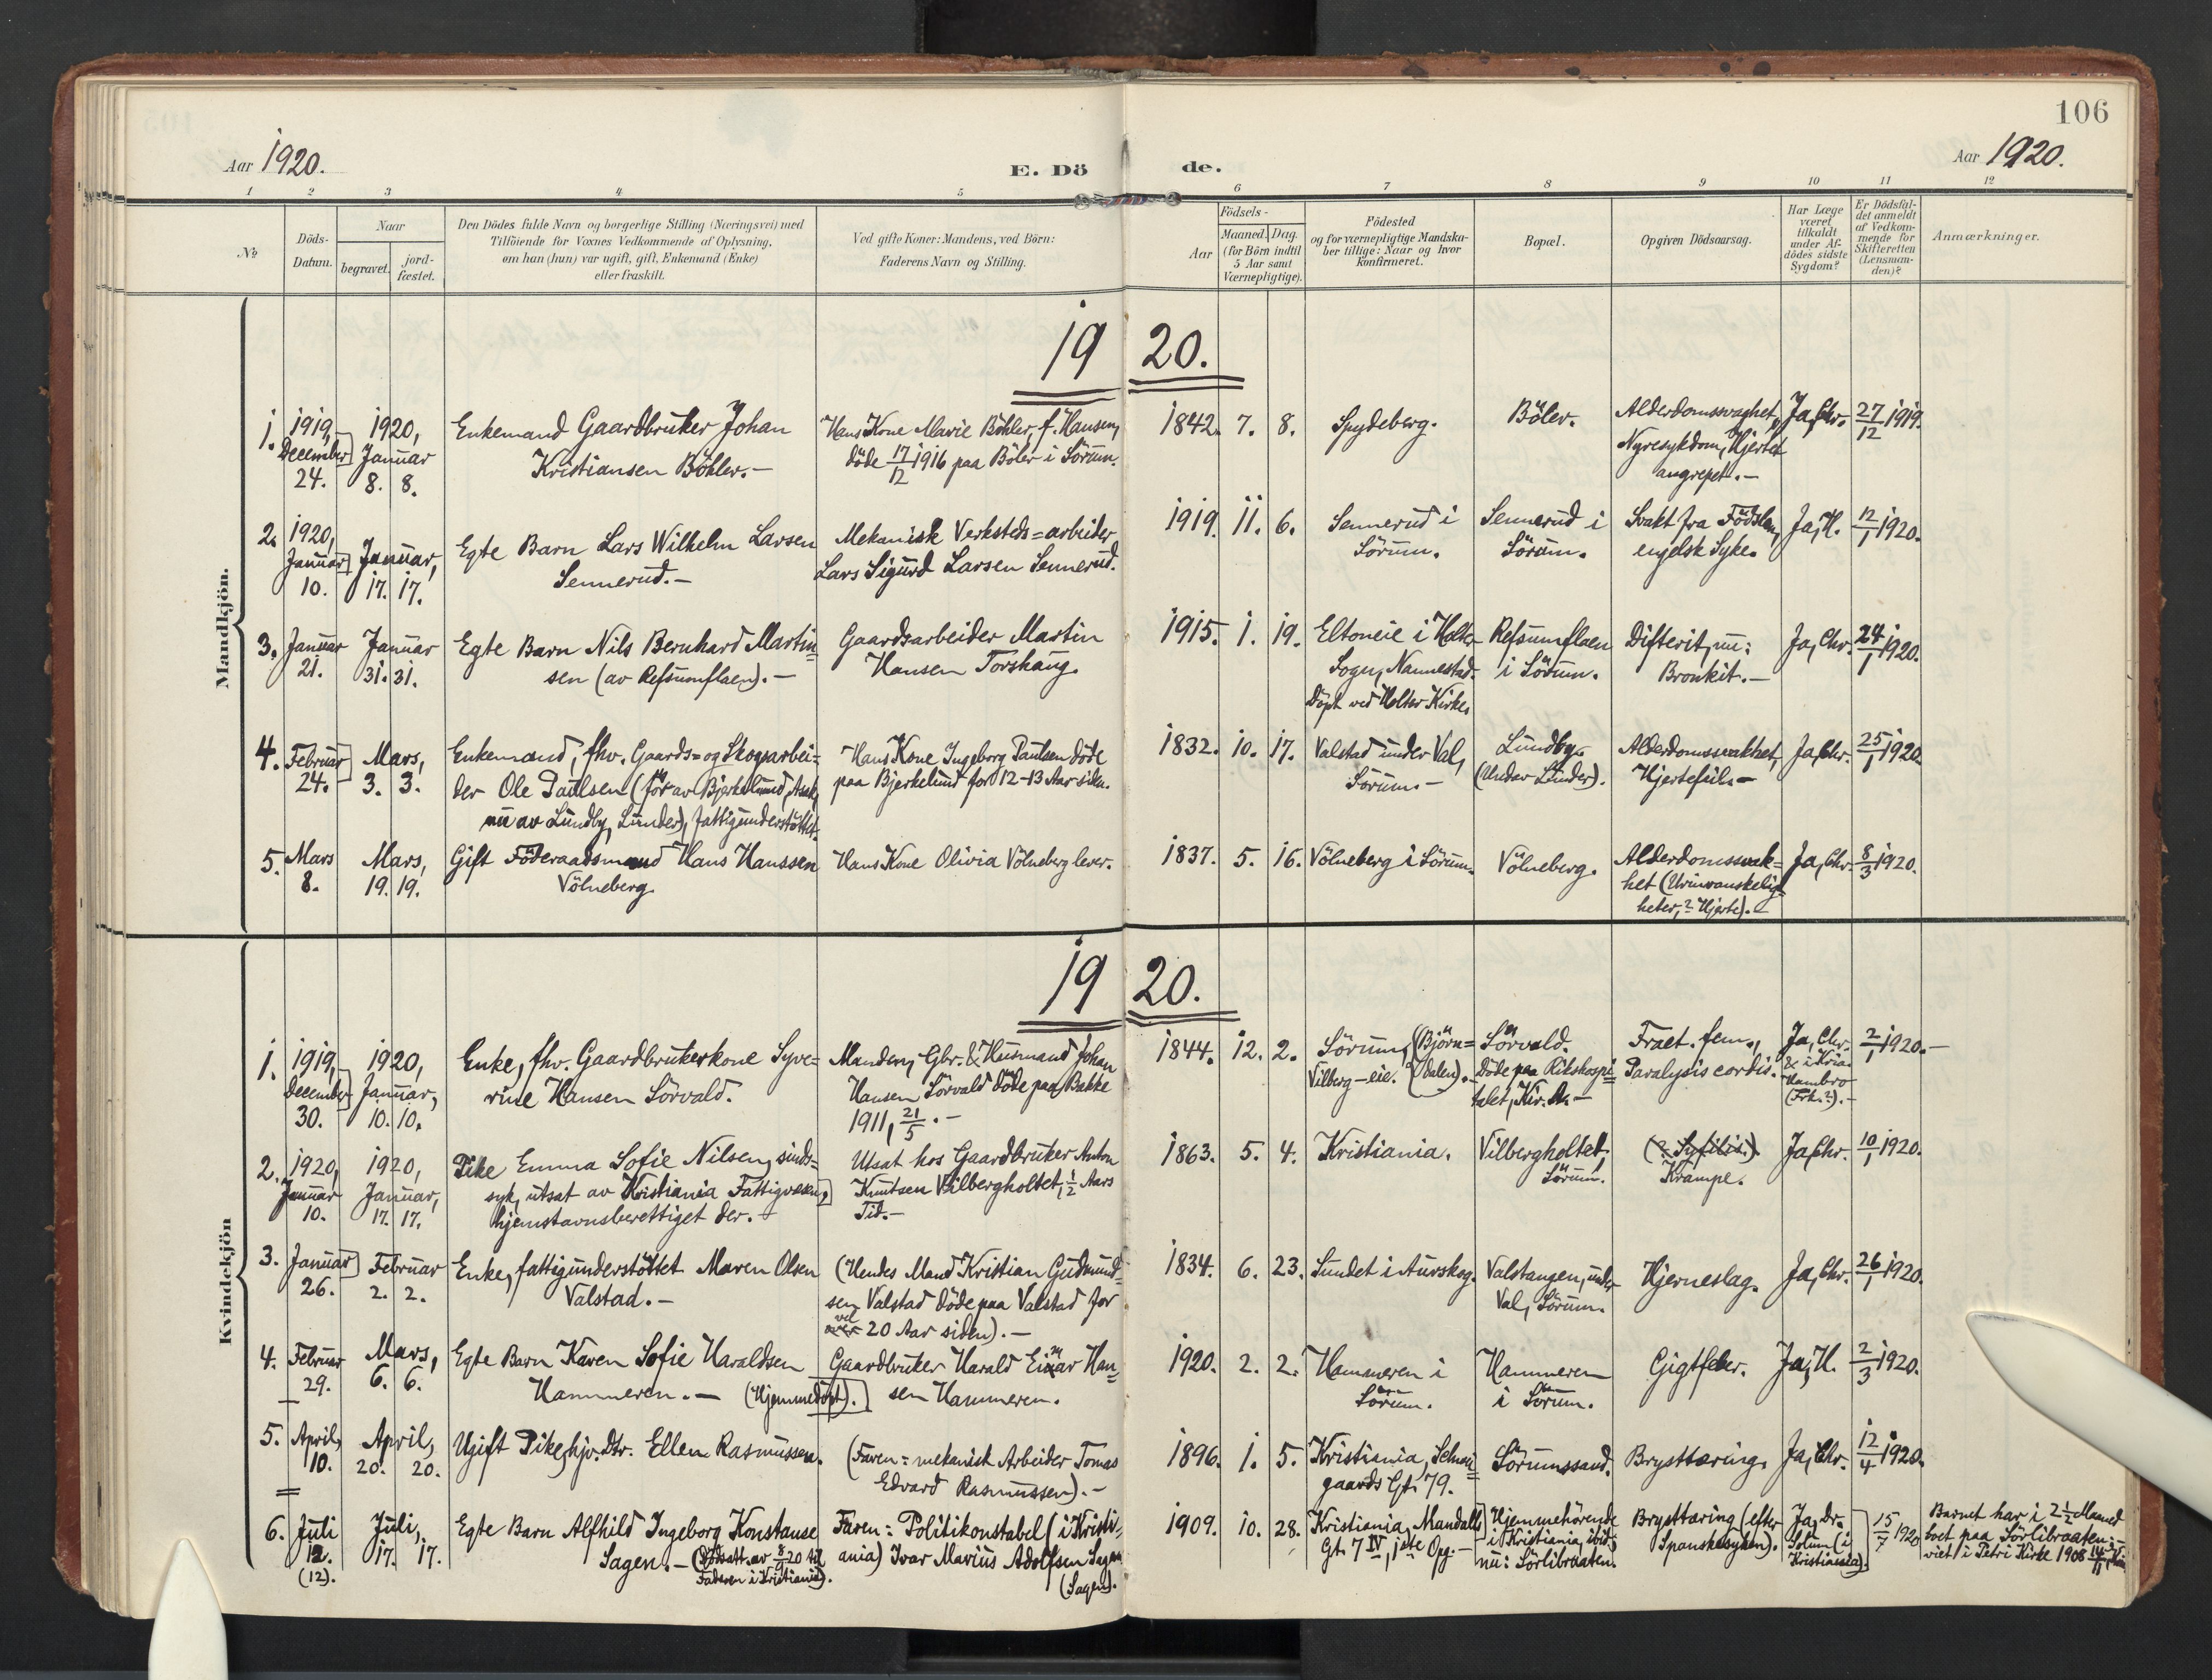 106
Aar 1920.
E. Dö de.
Aar 1920.
1 2 3 4 5 6 7 8 9 10 11 12
No
Döds-
Datum.
Naar
begravet.
jord-
fæstet.
Den Dödes fulde Navn og borgerlige Stilling (Næringsvei) med
Tilföiende for Voxnes Vedkommende af Oplysning,
om han (hun) var ugift, gift, Enkemand (Enke)
eller fraskilt.
Ved gifte Koner: Mandens, ved Börn:
Faderens Navn og Stilling.
Födsels-
Aar
Maaned.
Dag.
(for Börn indtil
5 Aar samt
Værnepligtige).
Födested
og for værnepligtige Mandska-
ber tillige: Naar og hvor
konfirmeret.
Bopæl.
Opgiven Dödsaarsag.
Har Læge
været
tilkaldt
under Af-
dödes sidste
Sygdom?
Er Dödsfal-
det anmeldt
af Vedkom-
mende for
Skifteretten
(Lensman-
den)?
Anmærkninger.
Mandkjön.
1920.
1.
1919,
December
24.
1920,
Januar
8. 8.
Enkemand Gaardbruker Johan
Kristiansen Böhler.-
Hans Kone Marie Böhler, f. Hansen,
döde 17/12 1916 paa Böler i Sörum.
1842. 7. 8.
Spydeberg.
Böler.
Alderdomssvaghet,
Nyresykdom, Hjertet
angrepet.-
Ja, Chr.
27/12 1919.
2.
1920,
Januar
10.
Januar,
17. 17.
Egte Barn Lars Wilhelm Larsen
Sennerud.-
Mekanisk Verksteds=arbeider
Lars Sigurd Larsen Sennerud.
1919. 11. 6.
Sennerud i
Sörum.
Sennerud i
Sörum.
Svakt fra Födslen,
engelsk Syke.
Ja, H.
12/1 1920.
3.
Januar
21.
Januar
31. 31.
Egte Barn Nils Bernhard Martin=
sen (av Refsumflaen).-
Gaardsarbeider Martin
Hansen Torshaug.
1915. 1. 19.
Eltoneie i Holter
Sogn, Nannestad.
Döpt ved Holter Kirke.
Refsumflaen
i Sörum.
Difterit, nu:
Bronkit.-
Ja, Chr.
24/1 1920.
4.
Februar
24.
Mars,
3. 3.
Enkemand, fhv. Gaards=og Skogsarbei=
der Ole Paulsen (för av Bjerkelund, Asak,
nu av Lundby, Lunder), fattigunderstöttet.
Hans Kone Ingeborg Paulsen döde
paa Bjerkelund for 12-13 Aar siden.
1832. 10. 17.
Valstad under Val,
Sörum.-
Lundby
(Under Lunder).
Alderdomssvakhet,
Hjertefeil.-
Ja, Chr.
25/1 1920.
5.
Mars
8.
Mars,
19. 19.
Gift Föderaadsmand Hans Hanssen
Völneberg.
Hans Kone Olivia Völneberg lever.
1837. 5. 16.
Völneberg i Sörum.
Völneberg.
Alderdomssvak=
het (Urinvanskelig=
heter, ? Hjerte).-
Ja, Chr.
8/3 1920.
Kvindekjön
1920.
1.
1919,
December
30.
1920,
Januar,
10. 10.
Enke, fhv. Gaardbrukerkone Syve=
rine Hansen Sörvald.
Manden, Gbr. & Husmand Johan
Hansen Sörvald döde paa Bakke
1911, 21/5.-
1844. 12. 2.
Sörum, (Björn=
Vilberg-eie. dalen).-
Sörvald.
Döde paa Rikshospi=
talet, Kr.A.-
Fract. fem.,
Paralysis cordis.
Ja, Chr.
& i Kria.
Hambro
(Frk.?).-
2/1 1920.-
2.
1920,
Januar
10.
1920,
Januar,
17. 17.
Pike Emma Sofie Nilsen, sinds=
syk, utsat av Kristiania Fattigvæsen,
hjemstavnsberettiget der.-
Utsat hos Gaardbruker Anton
Knutsen Vilbergholtet, 1/2 Aars
Tid.-
1863. 5. 4.
Kristiania.
Vilbergholtet,
Sörum.
(? Syfilis.)
Krampe.
Ja, Chr.
10/1 1920.
3.
Januar
26.
Februar
2. 2.
Enke, fattigunderstöttet Maren Olsen
Valstad.-
(Hendes Mand Kristian Gudmund=
sen Valstad döde paa Valstad for
vel
over 20 Aar siden).-
1834. 6. 23.
Sundet i Aurskog.
Valstangen, under
Val, Sörum.
Hjerneslag.
Ja, Chr.
26/1 1920.
4.
Februar
29.
Mars,
6. 6.
Egte Barn Karen Sofie Haraldsen
Hammeren.- (Hjemmedöpt).
Gaardbruker Harald Einar Han=
sen Hammeren.
1920. 2. 2.
Hammeren i
Sörum.
Hammeren
i Sörum.
Gigtfeber.
Ja, H.
2/3 1920.
5.
April,
10.
April,
20. 20.
Ugift Pike, hjv. Dtr. Ellen Rasmussen.
(Faren = mekanisk Arbeider Tomas
Edvard Rasmussen).-
1896. 1. 5.
Kristiania, Schwei=
gaards Gt. 79.
Sörumssand.
Brysttæring.
Ja, Chr.
12/4 1920.
6.
Juli
12.
(12).
Juli,
17. 17.
Egte Barn Alfhild Ingeborg Konstanse
Sagen.- (Dödsatt. av 8/9 20 til
Faderen i Kristiania).
Faren: Politikonstabel (i Kristi=
ania) Ivar Marius Adolfsen Sagen
(Sagen).
1909. 10. 28.
Kristiania, Mandalls
Gt. 7 IV, 1ste Opg.-
Hjemmehörende
i Kristiania, ibid.;
nu: Sörlibraaten.
Brysttæring (efter
Spanskesyken).
Ja, Dr.
Solum (i
Kristiania).
15/7 1920
Barnet har i 2 1/2 Maaned
boet paa Sörlibraaten.-
viet i Petri Kirke 1908